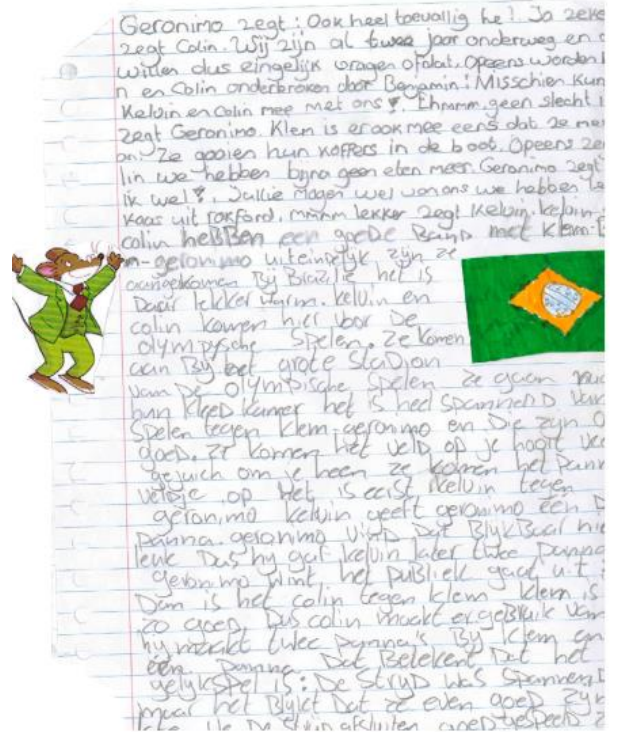 Geronimo zegt: Ook heel toevallig he! Ja zeke
zegt Colin. Wij zijn al twee jaar onderweg en
willen dus eingelijk vragen ofdat. Opeens worden
n en Colin onderbroken door Benjamin: Misschien kun
Kelvin en Colin mee met ons?. Ehmmm, geen slecht i
zegt Geronimo. Klem is er ook mee eens dat ze me
on. Ze gooien hun koffers in de boot. Opeens ze
lin we hebben bijna geen eten meer. Geronimo zegt
ik wel?. Jullie mogen wel van ons we hebben le
kaas uit rokford. mmm lekker zegt Kelvin. kelvin
colin heBBen een goeDe BanD met Klem-B
n-geronimo uiteindelyk zijn ze
aangekomen Bij Brazilie het is
Daar lekker warm. kelvin en
colin komen hier voor De
olympysche Spelen. Ze komen
aan By het grote StaDion
van De olympische spelen ze gaan naa
hun kleeDkamer het is heel SpannenD van
Spelen tegen klem-geronimo en Die zyn
goeD. ze komen het velD op je hoort vee
gejuich om je heen ze komen het Pann
velDje op Het is eerst kelvin tegen
geronimo kelvin geeft geronimo een P
Panna. geronimo vinD Dat BlykBaar nie
leuk Dus hy gaf kelvin later twee panna
geronimo wint het puBliek gaat uit
Dan is het colin tegen klem klem is
zo goeD Dus colin maakt er geBruik van
hy maakt twee panna's By klem en
één panna Dat Betekent Dat het
gelykspel is: De StryD was SpannenD
maar het Blykt Dat ze even goeD zyn
De afsluiten goeD gespeelD